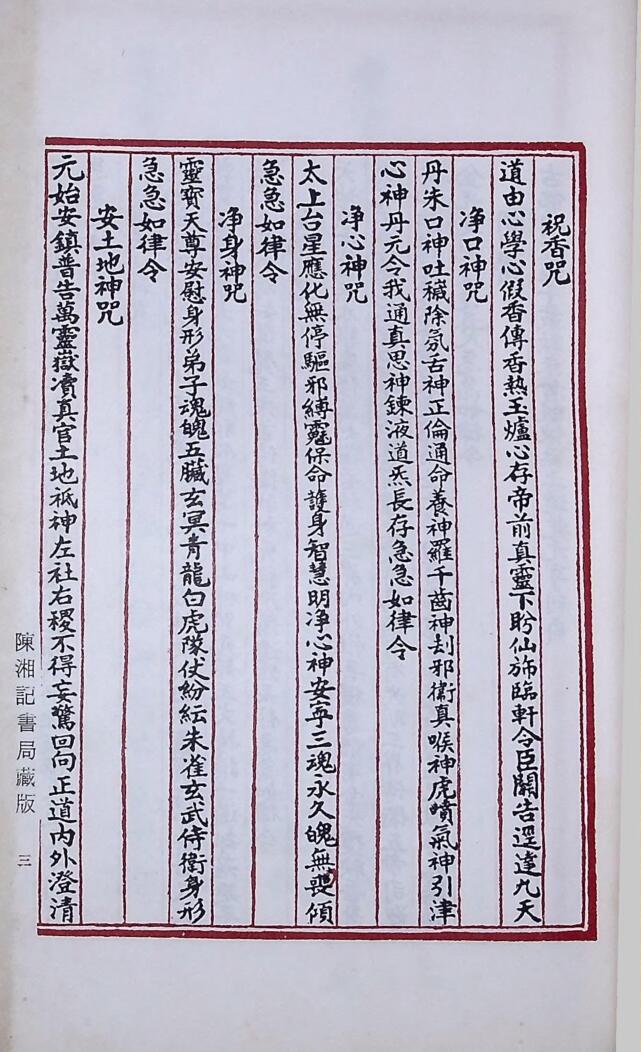 祝香咒
道由心學心假香傳香熱玉爐心存帝前真靈下盻仙斾臨軒令臣關告逕達九天
净口神咒
丹朱口神吐穢除氛舌神正倫通命養神羅千齒神刦邪衞真喉神虎噴氣神引津
心神丹元令我通真思神鍊液道炁長存急急如律令
净心神咒
太上台星應化無停驅邪縛魅保命護身智慧明净心神安寧三魂永久魄無喪傾
急急如律令
净身神咒
靈寶天尊安慰身形弟子魂魄五臟玄冥青龍白虎隊仗紛紜朱雀玄武侍衛身形
急急如律令
安土地神咒
元始安鎮普告萬靈嶽凟真官土地祇神左社右稷不得妄驚回向正道内外澄清
陳湘記書局藏版
三